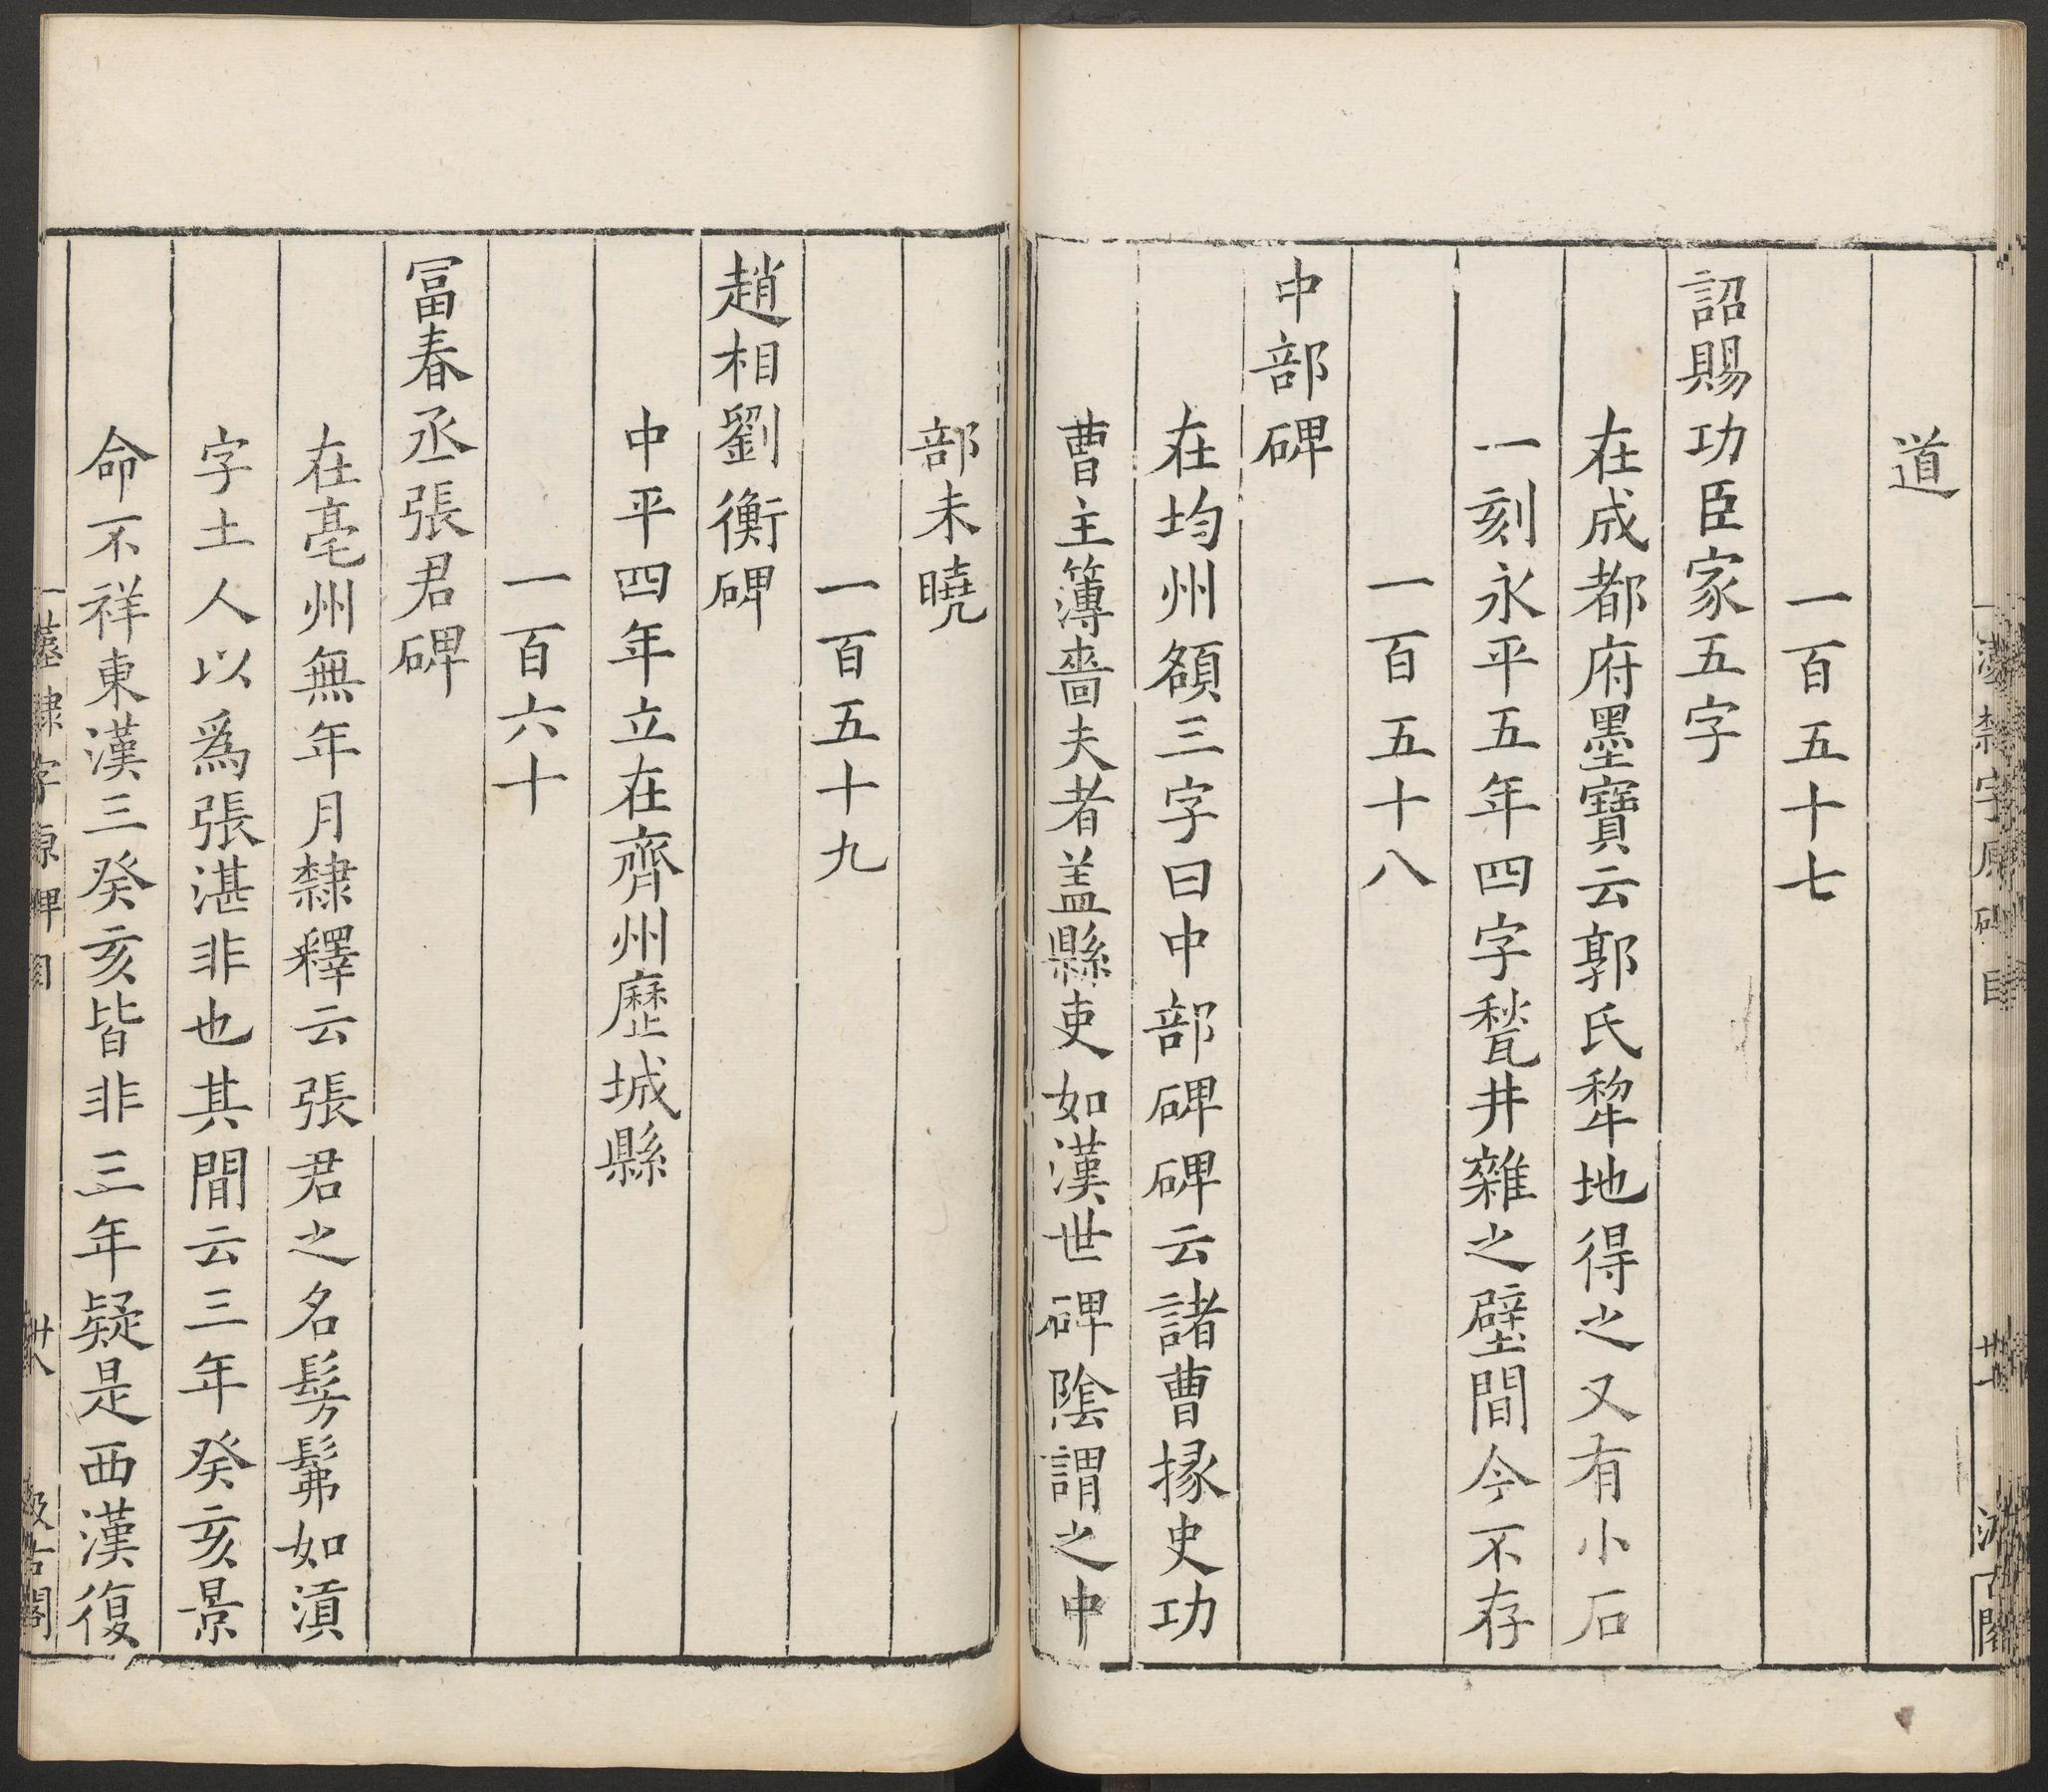 道
一百五十七
詔賜功臣家五字
在成都府墨寶云郭氏犂地得之又有小石
一刻永平五年四字甃井雜之壁間今不存
一百五十八
中部碑
在均州額三字曰中部碑碑云諸曹掾史功
曹主簿嗇夫者盖縣吏如漢世碑陰謂之中
部未曉
一百五十九
趙相劉衡碑
中平四年立在齊州歷城縣
一百六十
冨春丞張君碑
在亳州無年月隸釋云張君之名髣髴如滇
字土人以爲張湛非也其間云三年癸亥景
命不祥東漢三癸亥皆非三年疑是西漢復
隸字原碑目
卄八
汲古閣